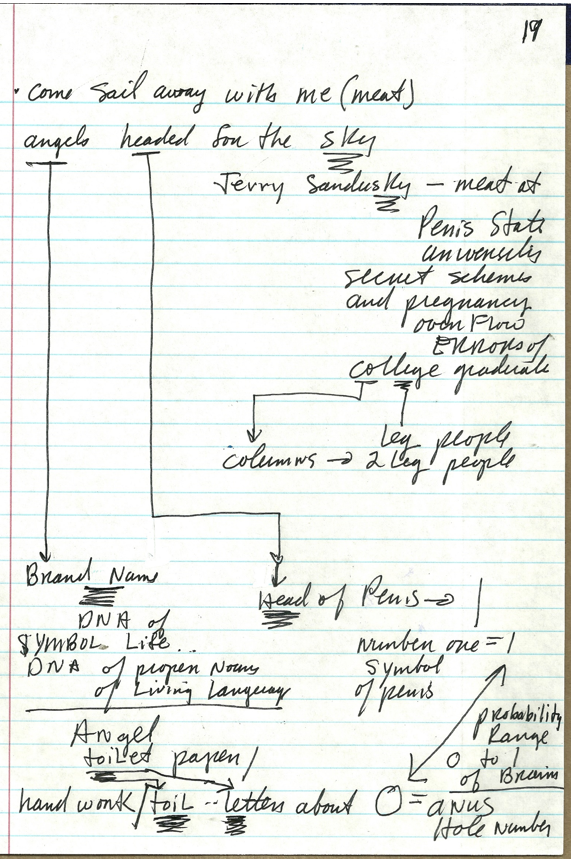 19
• come sail away with me (meat)
angels headed for the sky
Jerry Sandusky – meat at
Penis State
university
secret schemes
and pregnancy
overflow
ERRORS of
college graduate
leg people
columns → 2 leg people
Brand Name
Head of Penis → 1
DNA of
SYMBOL Life..
number one = 1
DNA of proper Nouns
symbol
of Living Language
of penis
probability
Range
0 to 1
of Brains
Angel
toilet paper /
hand work / toil -- letters about 0 = anus
Hole Number